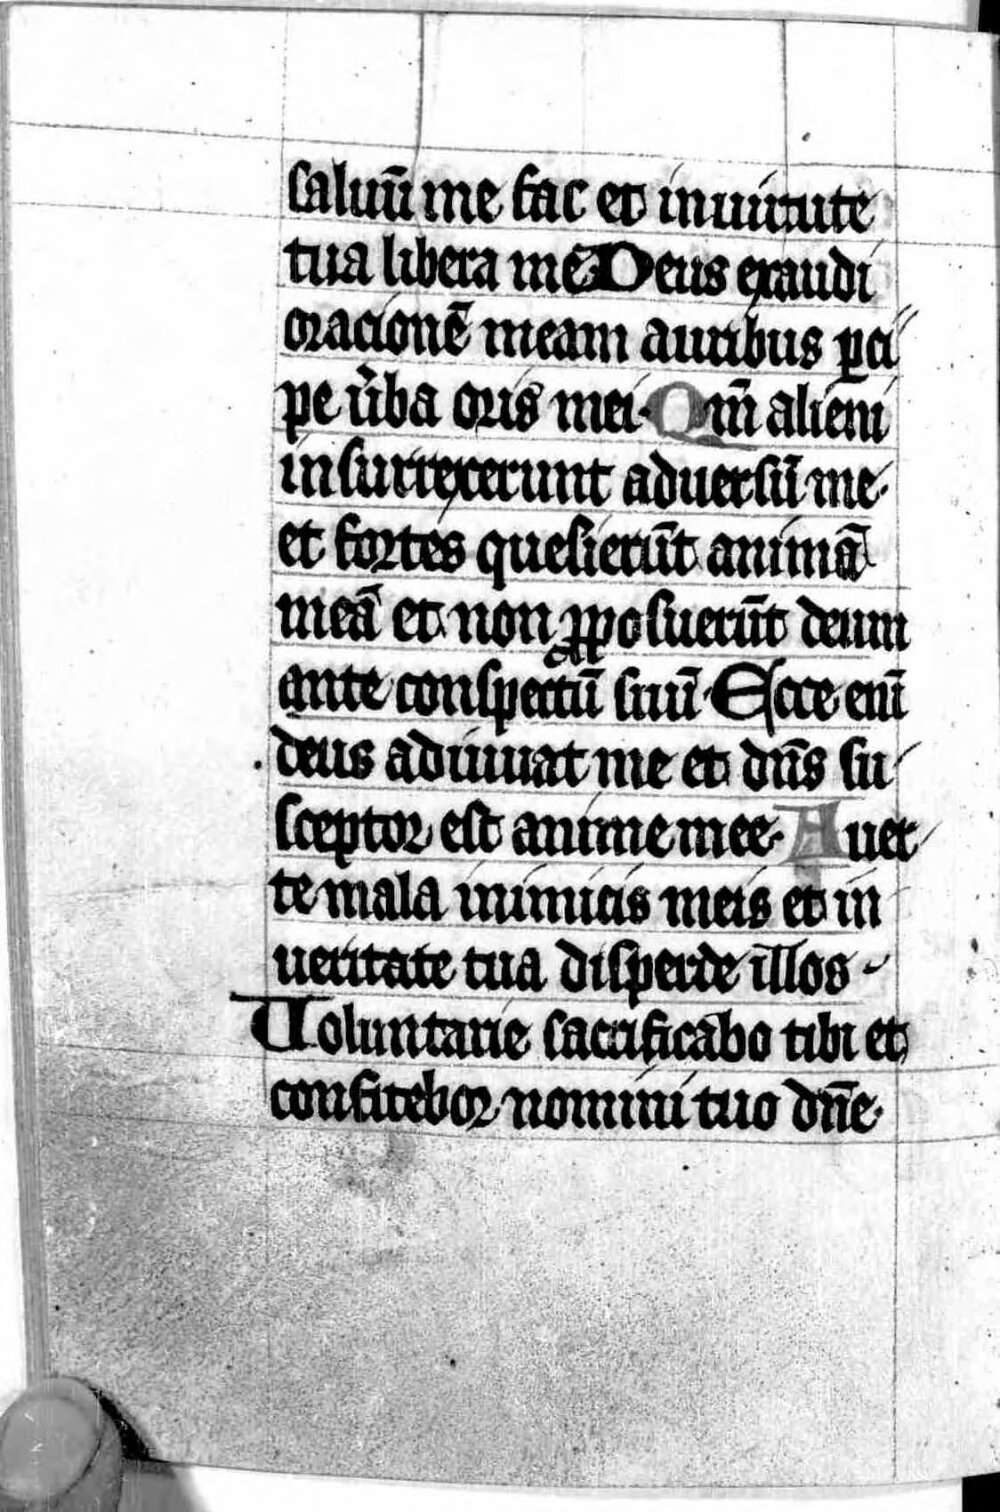 saluū me fac et in uirtute
tua libera mē Deus exaudi
oracionē meam auribus ꝑci
pe ŭba oris mei· Qm̄ alieni
insurrexerunt aduersū me·
et fortes quesierūt animā
meā et non ꝓposuerūt deum
ante conspectū suū· Ecce enī
deus adiuuat me et dn̄s su
sceptor est anime mee· Auer
te mala inimicis meis et in
ueritate tua disperde illos
Uoluntarie sacrificabo tibi et
confitebor nomini tuo dn̄e·